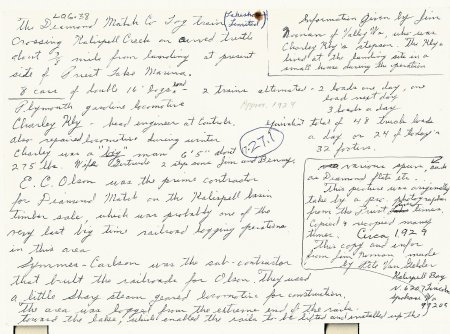 LOG-38
The Diamond Match Co Log train
(Lakeshore Limited)
Crossing Kalispell Creek on curved trestle
about 3/4 mile from landing at present
site of Priest Lake Marina.
8 cars of double 16' logs, and - 2 trains alternated - 2 loads one day, one
load next day
3 loads a day
Plymouth gasoline locomotive
Approx. 1929
Charley Kly - head engineer at Controls.
equivalent total of 48 truck loads
also repaired locomotives during winter
a day or 24 of today's
32 footers.
Charley was a "big" man 6'5" about
275 lbs. Wife Gertrude 2 step sons Jim and Benny.
7-27.1
E. C. Olson was the prime contractor
for Diamond Match on the Kalispell basin
timber sale, which was probably one of the
very last big time railroad logging operations
in this area
Symmes-Carlson was the sub-contractor
that built the railroads for Olson. They used
a little Shay steam geared locomotive for construction.
The area was logged from the extreme end of the rails
toward the lake, which enabled the rails to be lifted and installed up the
Information given by Jim
Noonan of Valley Wa, who was
Charley Kly's stepson. The Klys
lived at the landing site in a
small home during the operation
various spurs, such
as Diamond flats etc.
This picture was originally
taken by a pro. photographer
from the Priest River Times.
Copied & recopied many
times. Circa 1929
This copy and infor
from Jim Noonan made
by Pete Van Sickle
Kalispell Bay
Spokane Wa
99205